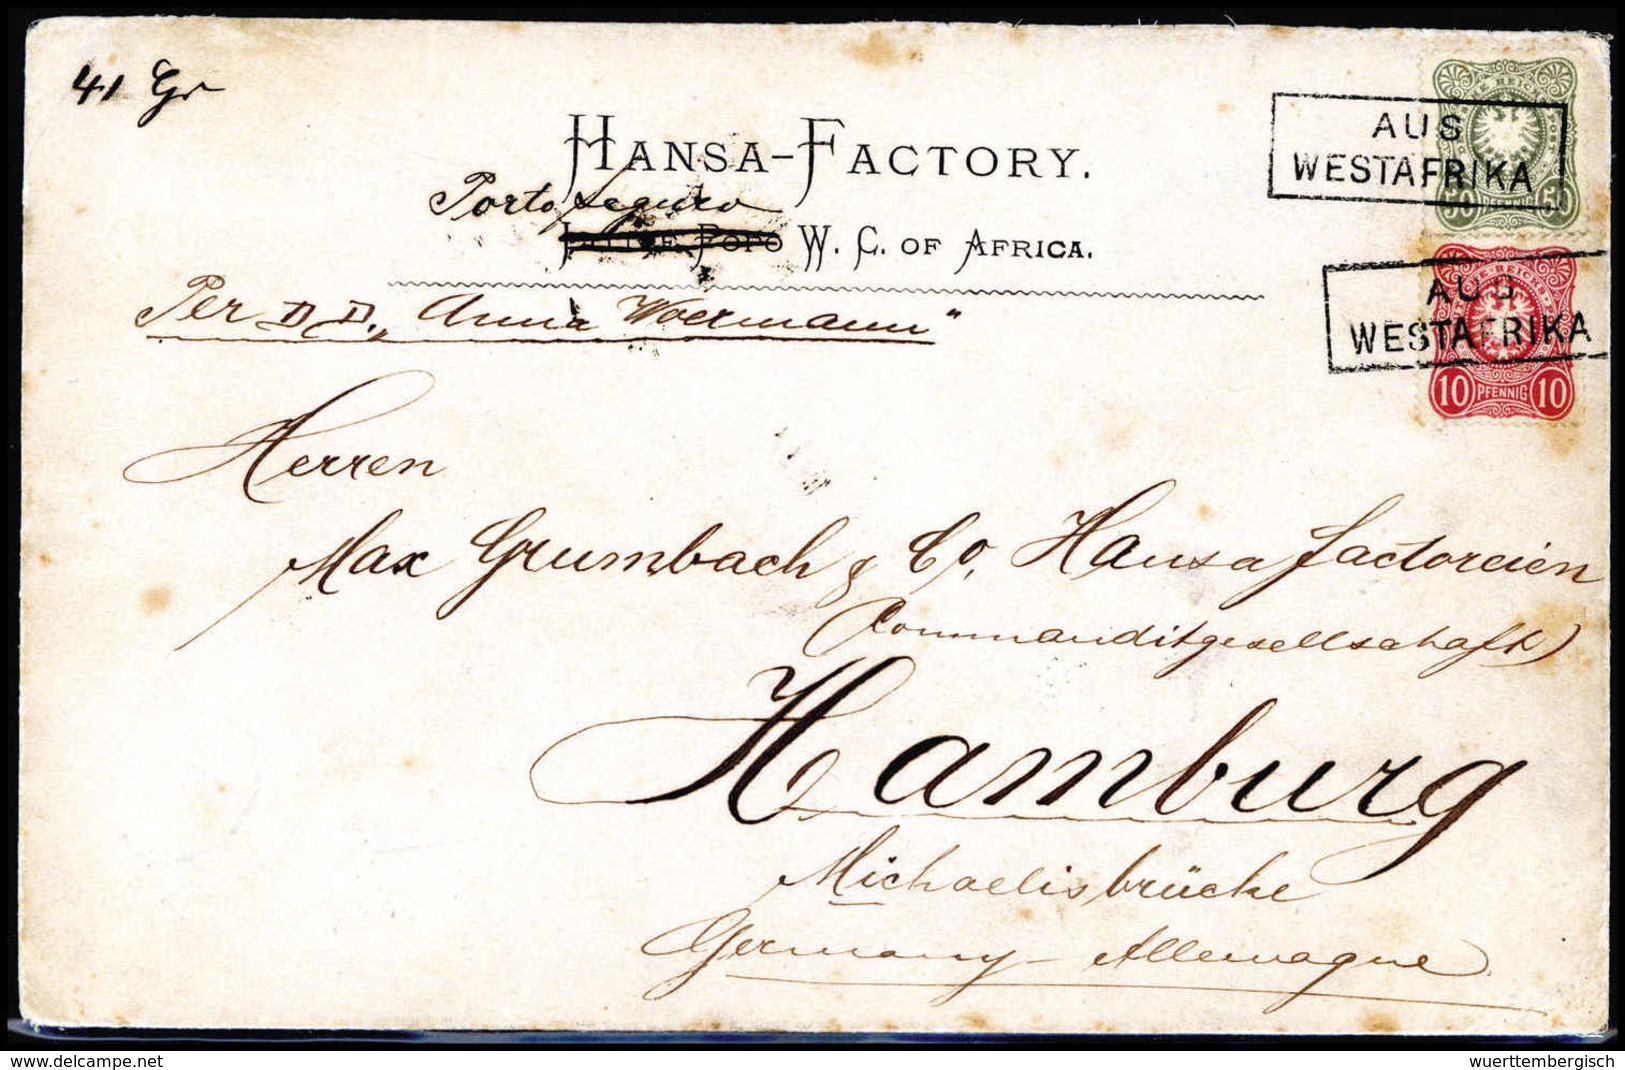 41 Gr
HANSA-FACTORY.
Porto Seguro
Little Popo W. C. OF AFRICA.
Per DD. „Anna Woermann"
AUS
WESTAFRIKA
50 PFENNIG 50
AUS
WESTAFRIKA
10 PFENNIG 10
Herren
Max Grumbach & Co, Hansa factoreien
(Commanditgesellschaft)
Hamburg
Michaelisbrücke
Germany - Allemagne
www.delcampe.net
wuerttembergisch